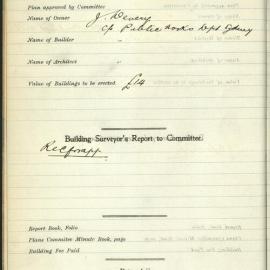 Plan approved by Committee
Name of Owner J. Devery
c/o Public Works Dept Sydney
Name of Builder "
Name of Architect "
Value of Buildings to be erected. £14
Building Surveyor's Report to Committee.
Rec for app.
Report Book, Folio
Plans Committee Minute Book, page
Building Fee Paid